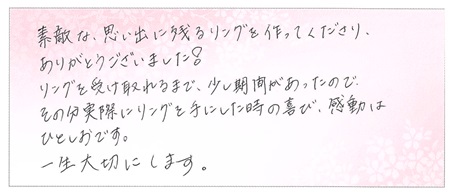 素敵な、思い出に残るリングを作ってくださり、
ありがとうございました!
リングを受け取れるまで、少し期間があったので、
その分実際にリングを手にした時の喜び、感動は
ひとしおです。
一生大切にします。